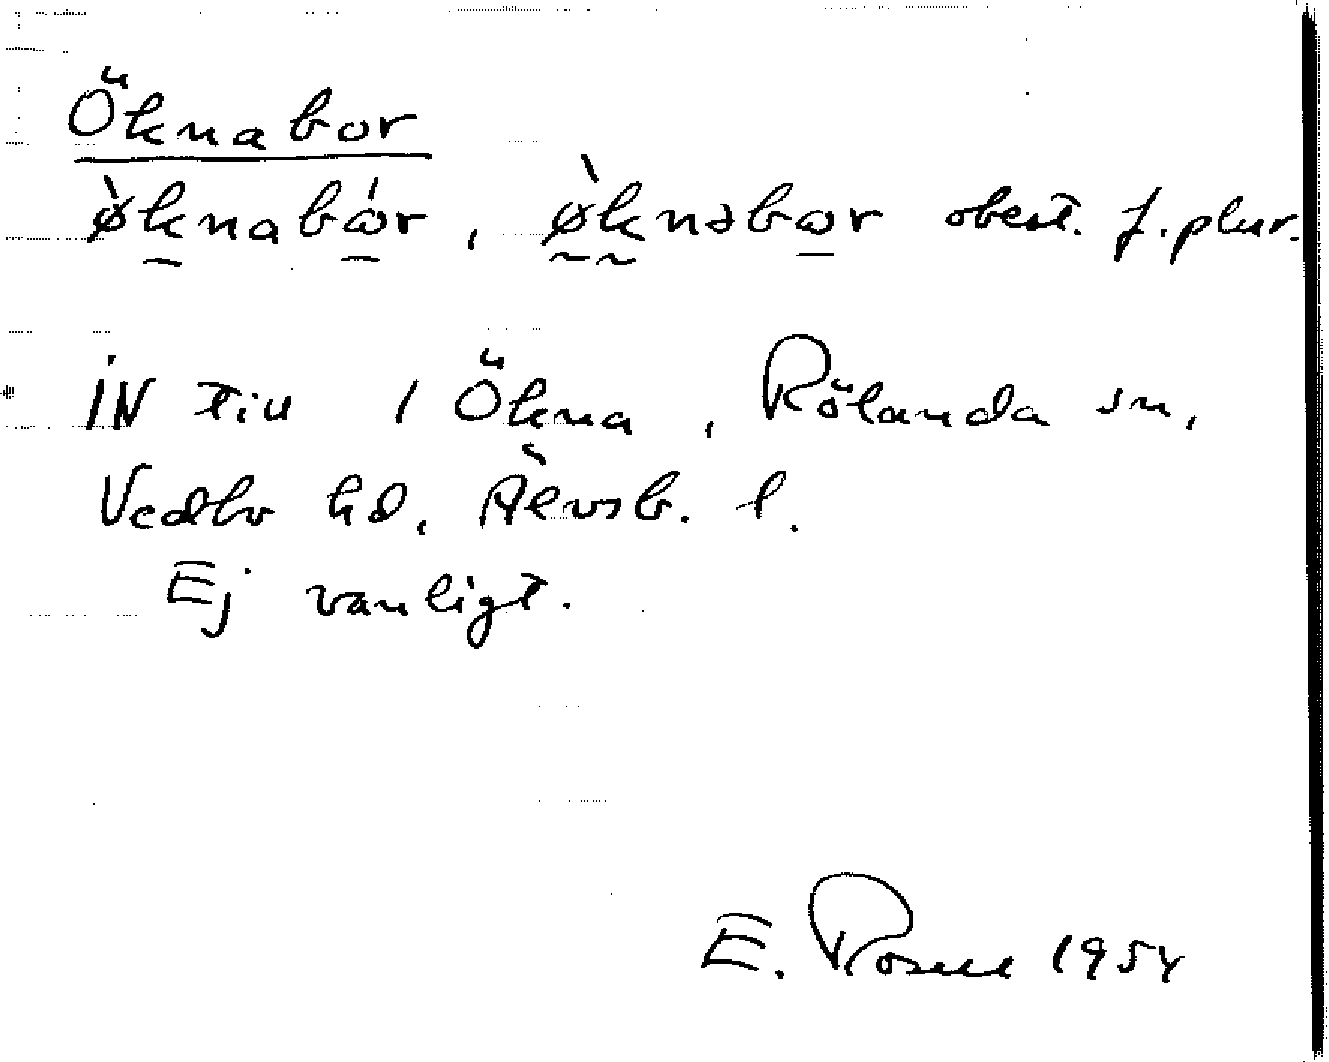 Öknabor
ø̀knabɷ́r, ø̀knəbɷr obest. f. plur.
IN till 1 Ökna, Rölanda sn,
Vedbo hd, Älvsb. l.
Ej vanligt.
E. Rosell 1954